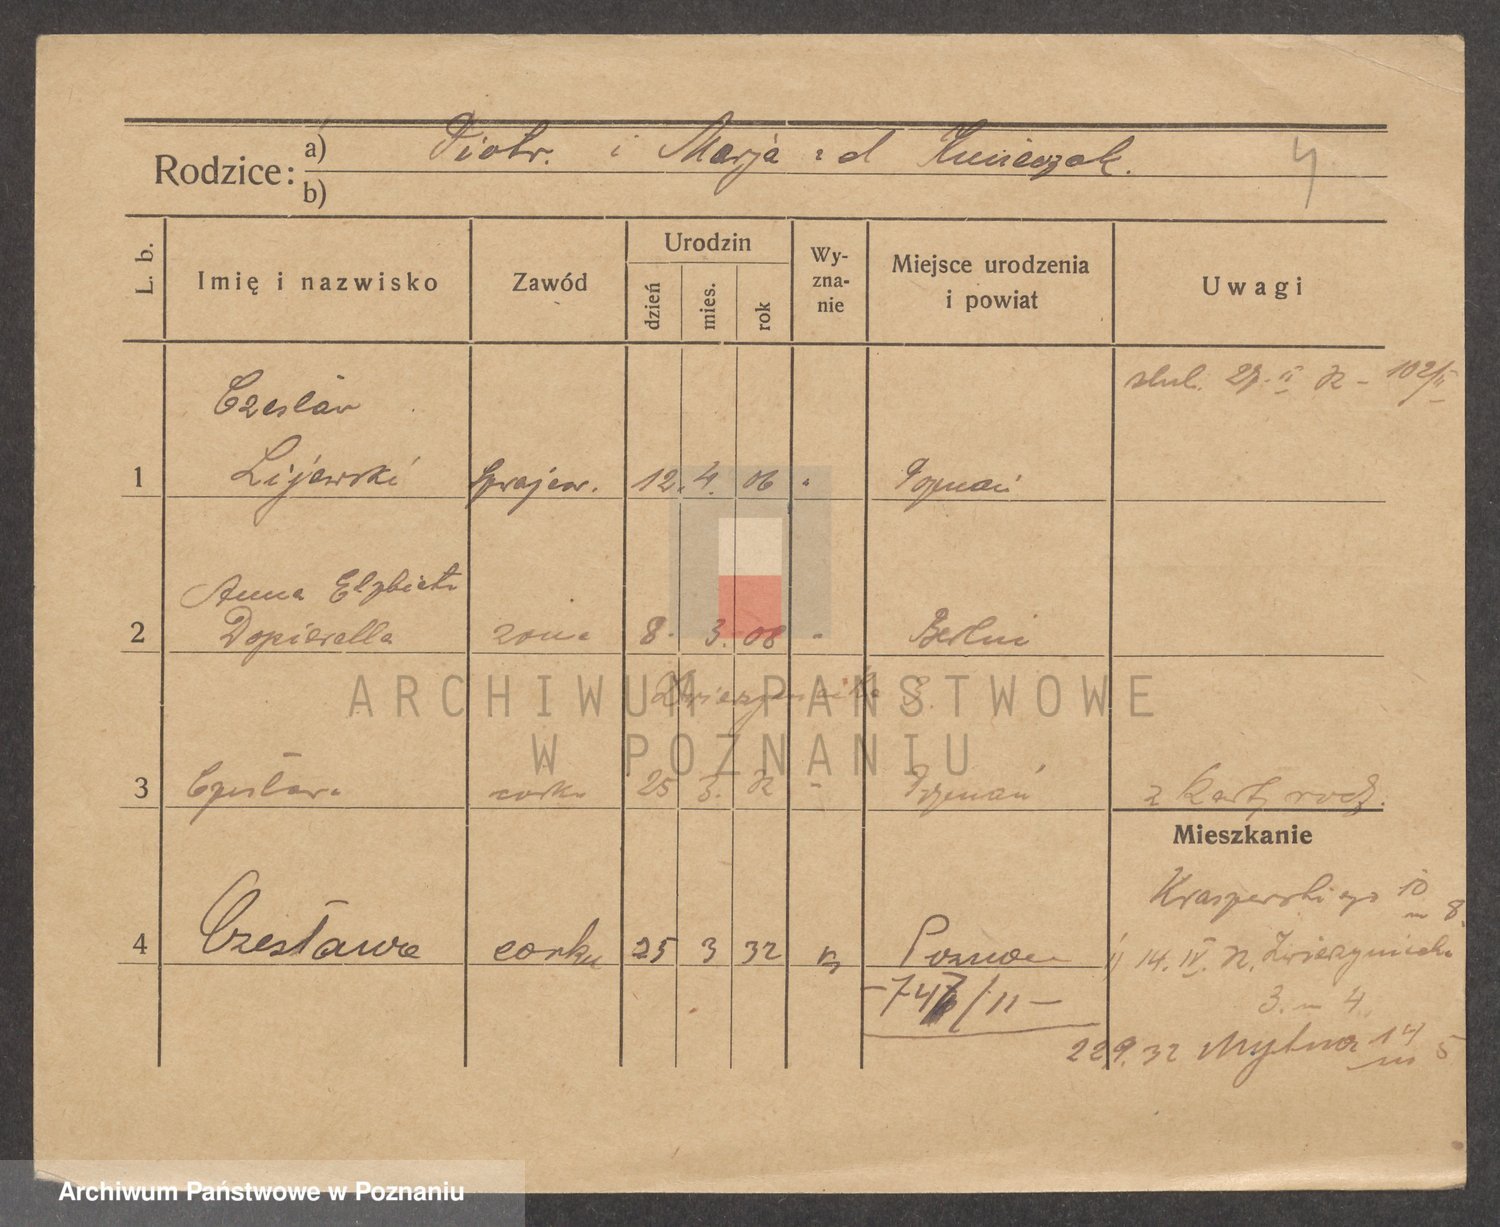 Rodzice: a) Piotr. i Marja z d
b)
L. b.
Imię i nazwisko
Zawód
Urodzin
dzień
mies.
rok
Wy-
zna-
nie
Miejsce urodzenia
i powiat
Uwagi
27. II 32 - 102/II
Czesław
1 Lijewski 12. 4. 06 Poznań
Anna Elżbieta
2 Dopieralla żona 8. 3. 08 Berlin
3 Czesława córka 25 3. 32 - Poznań z kart. rodz.
Mieszkanie
Kraszewskiego 10
m 8.
4 Czesława córka 25 3 32 Poznań 14. IV. 32. Zwierzyniecka
3. m 4.
/II -
22.9. 32 Mylna 14
m 5
ARCHIWUM PAŃSTWOWE
W POZNANIU
Archiwum Państwowe w Poznaniu